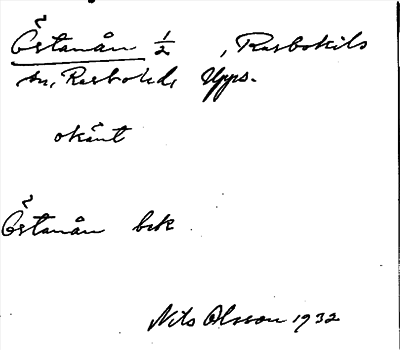 Östanån ½ , Rasbokils
sn, Rasbo hd, Upps.
okänt
Östanån bek
Nils Olsson 1932